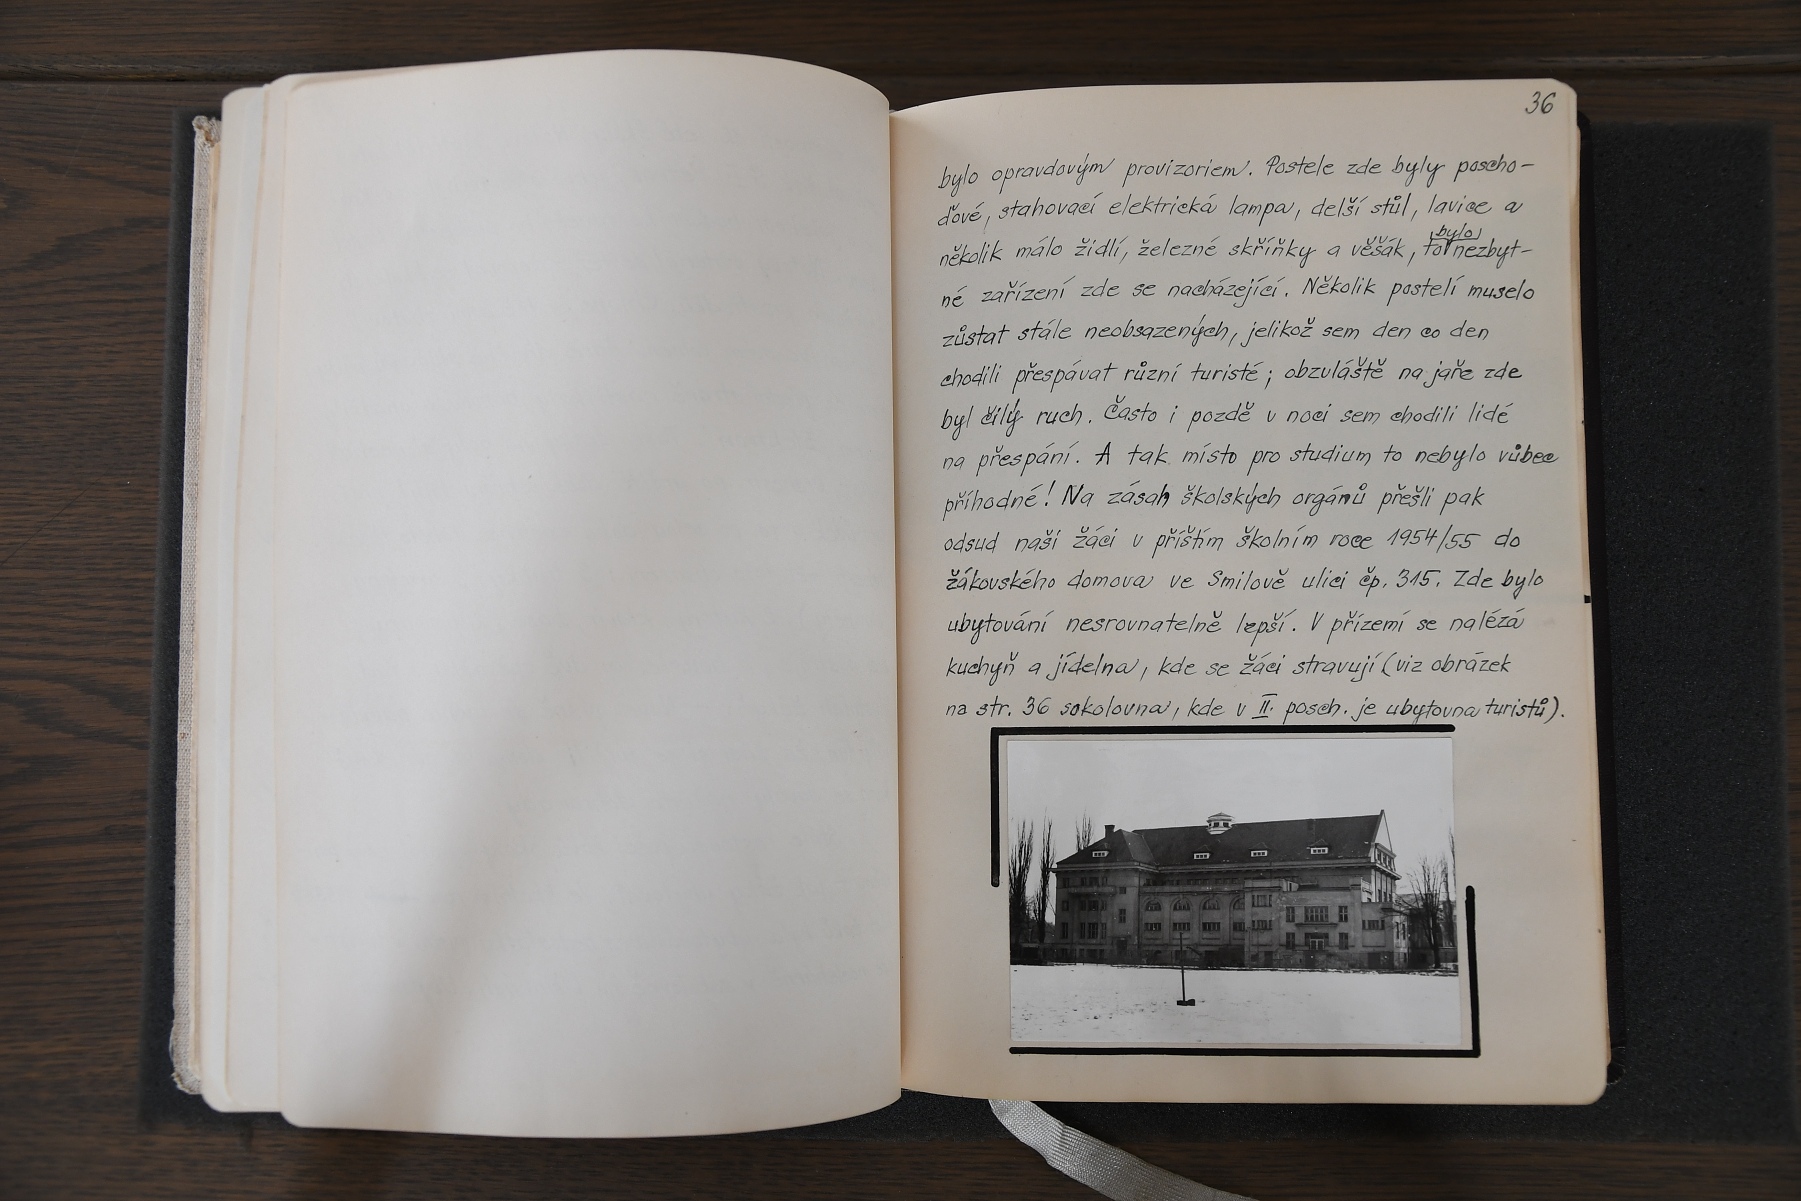 36
bylo opravdovým provizoriem. Postele zde byly poscho-
ďové, stahovací elektrická lampa, delší stůl, lavice a
několik málo židlí, železné skříňky a věšák, to bylo nezbyt-
né zařízení zde se nacházející. Několik postelí muselo
zůstat stále neobsazených, jelikož sem den co den
chodili přespávat různí turisté; obzvláště na jaře zde
byl čilý ruch. Často i pozdě v noci sem chodili lidé
na přespání. A tak místo pro studium to nebylo vůbec
příhodné! Na zásah školských orgánů přešli pak
odsud naši žáci v příštím školním roce 1954/55 do
žákovského domova ve Smilově ulici čp. 315. Zde bylo
ubytování nesrovnatelně lepší. V přízemí se nalézá
kuchyň a jídelna, kde se žáci stravují (viz obrázek
na str. 36 sokolovna, kde v II. posch. je ubytovna turistů).